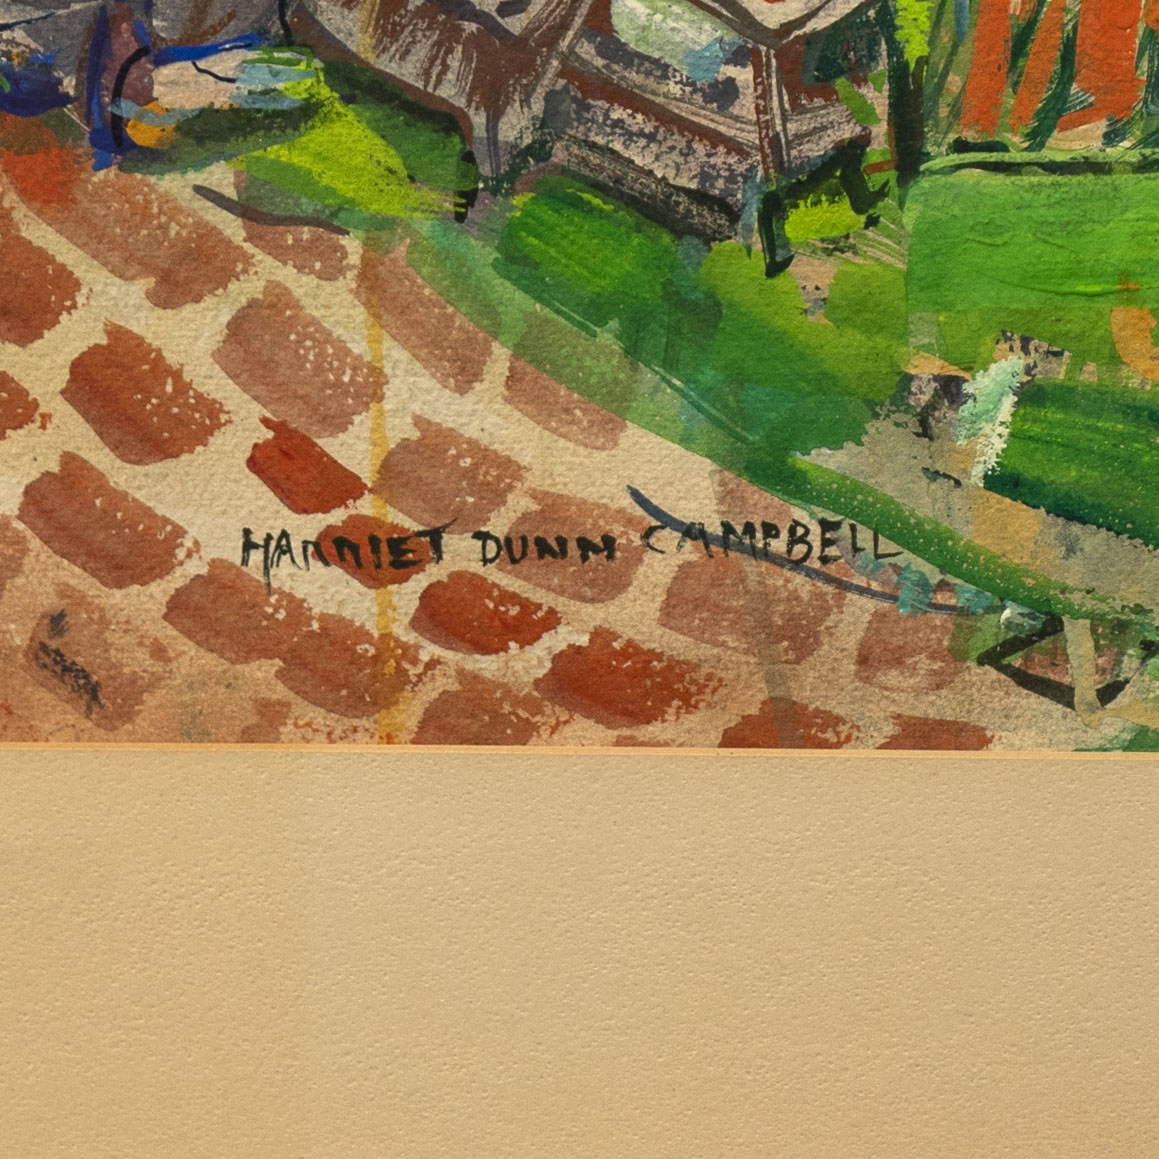 HARRIET DUNN CAMPBELL